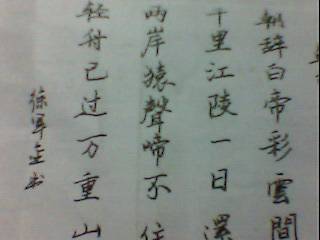 朝辞白帝彩雲間
千里江陵一日還
两岸猿聲啼不住
轻舟已过万重山
徐军